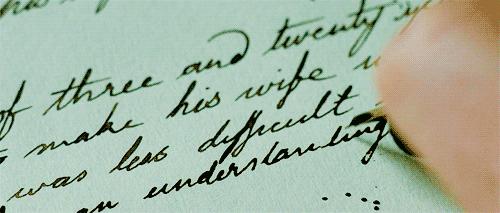 of three and twenty
make his wife
was less difficult
an understanding